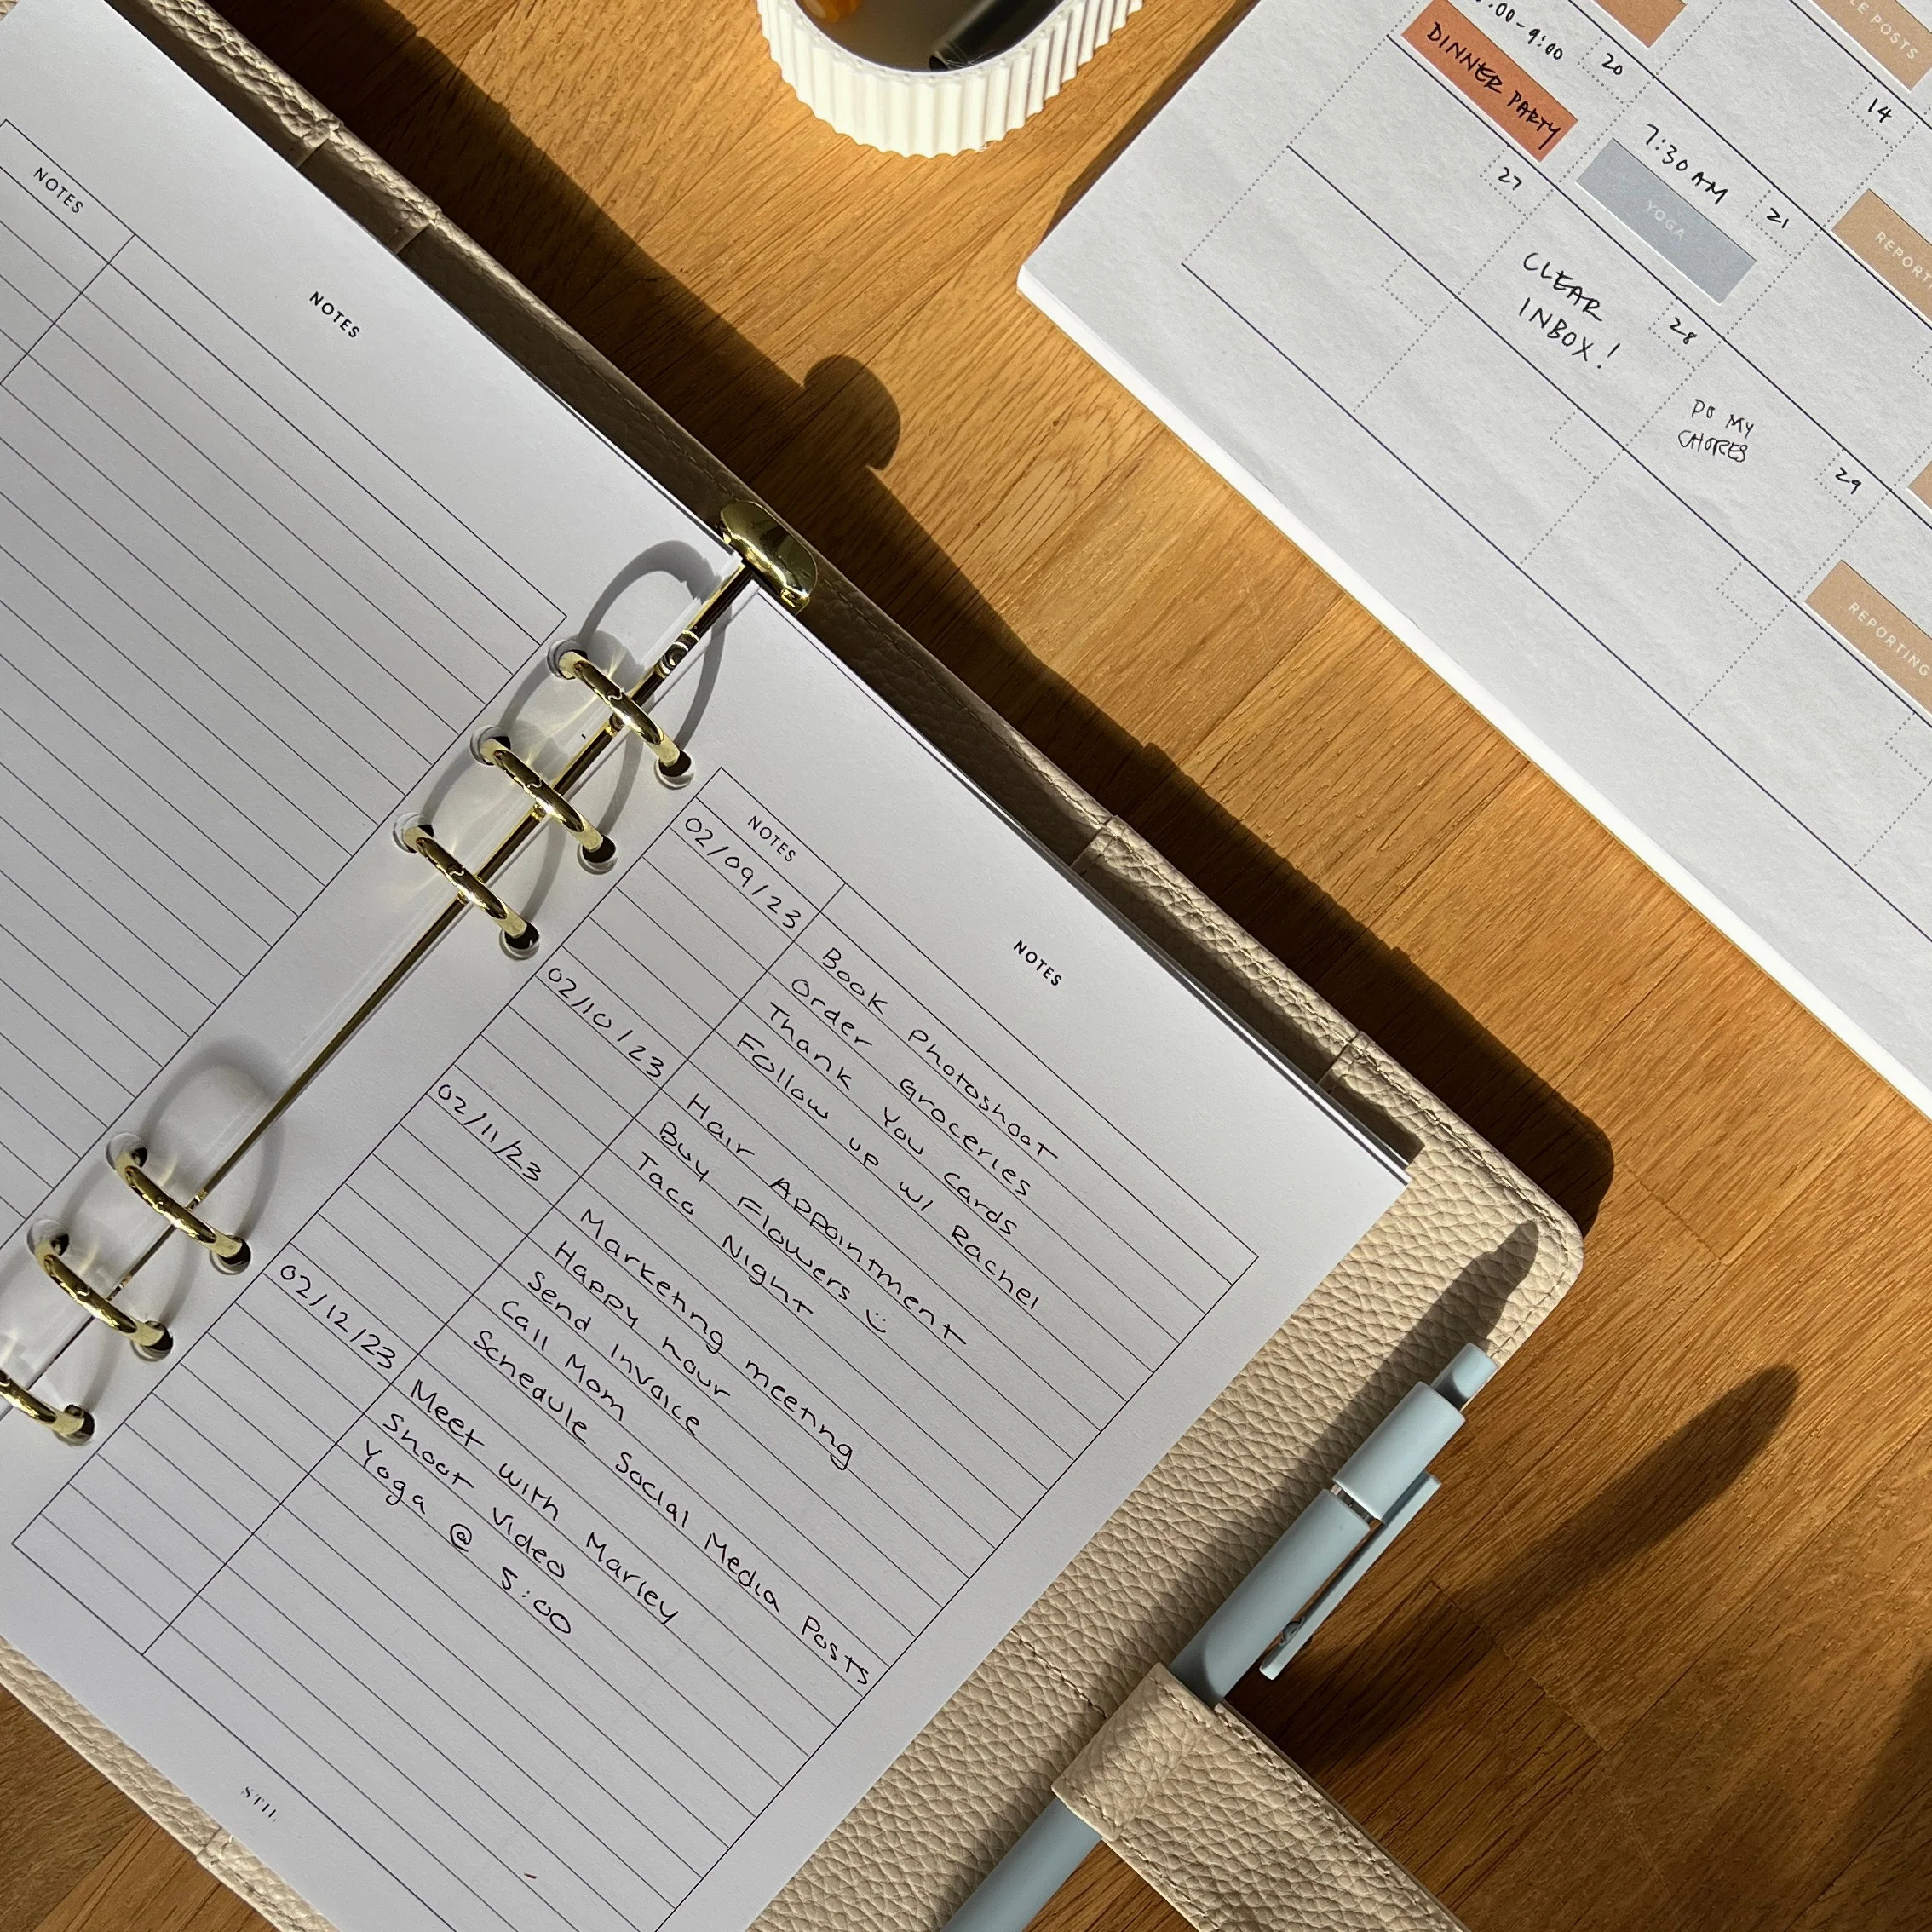 NOTES
NOTES
NOTES
NOTES
02/09/23
Book Photoshoot
Order Groceries
Thank You Cards
Follow up w/ Rachel
02/10/23
Hair Appointment
Buy Flowers :)
Taco Night
02/11/23
Marketing meeting
Happy hour
Send Invoice
Call Mom
Schedule Social Media Posts
02/12/23
Meet with Marley
Shoot Video
Yoga @ 5:00
STIL
POSTS
14
20
DINNER PARTY
7:30 AM
YOGA
21
27
CLEAR
INBOX!
28
DO MY
CHORES
29
REPORTING